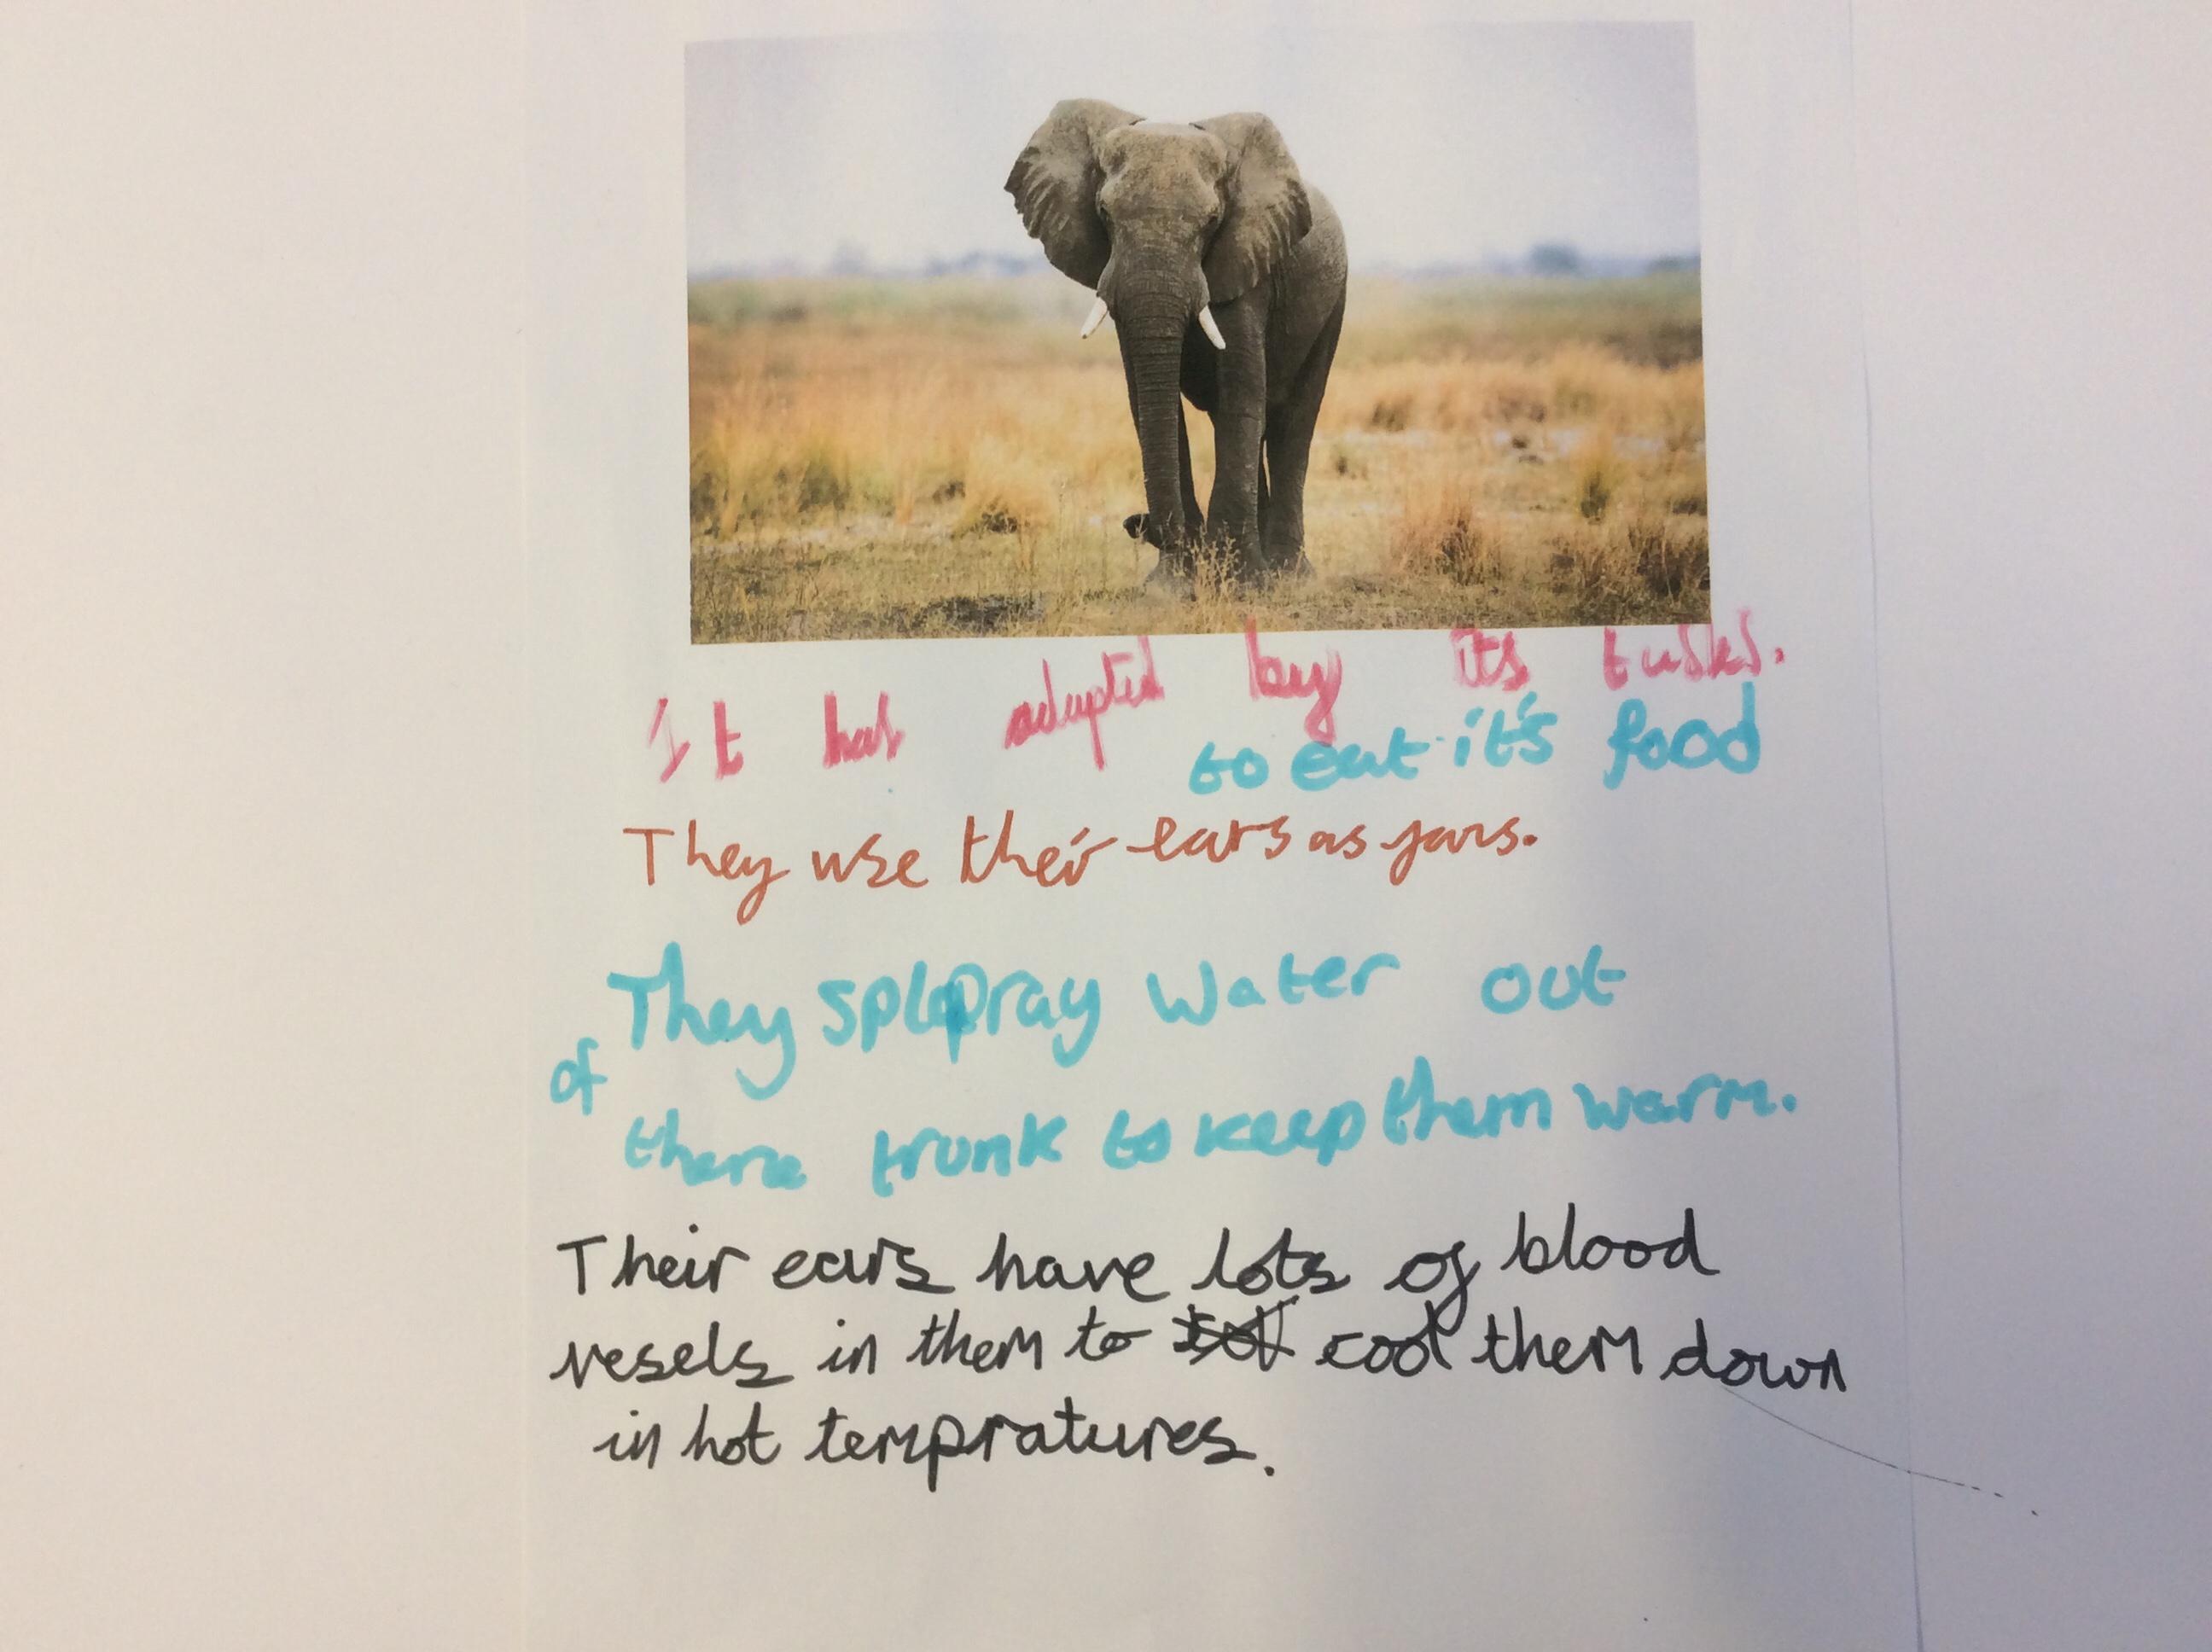 It has adapted by its tusks.
to eat it's food
They use their ears as fans.
They splpray water out
of there trunk to keep them warm.
Their ears have lots of blood
vesels in them to cool them down
in hot tempratures.